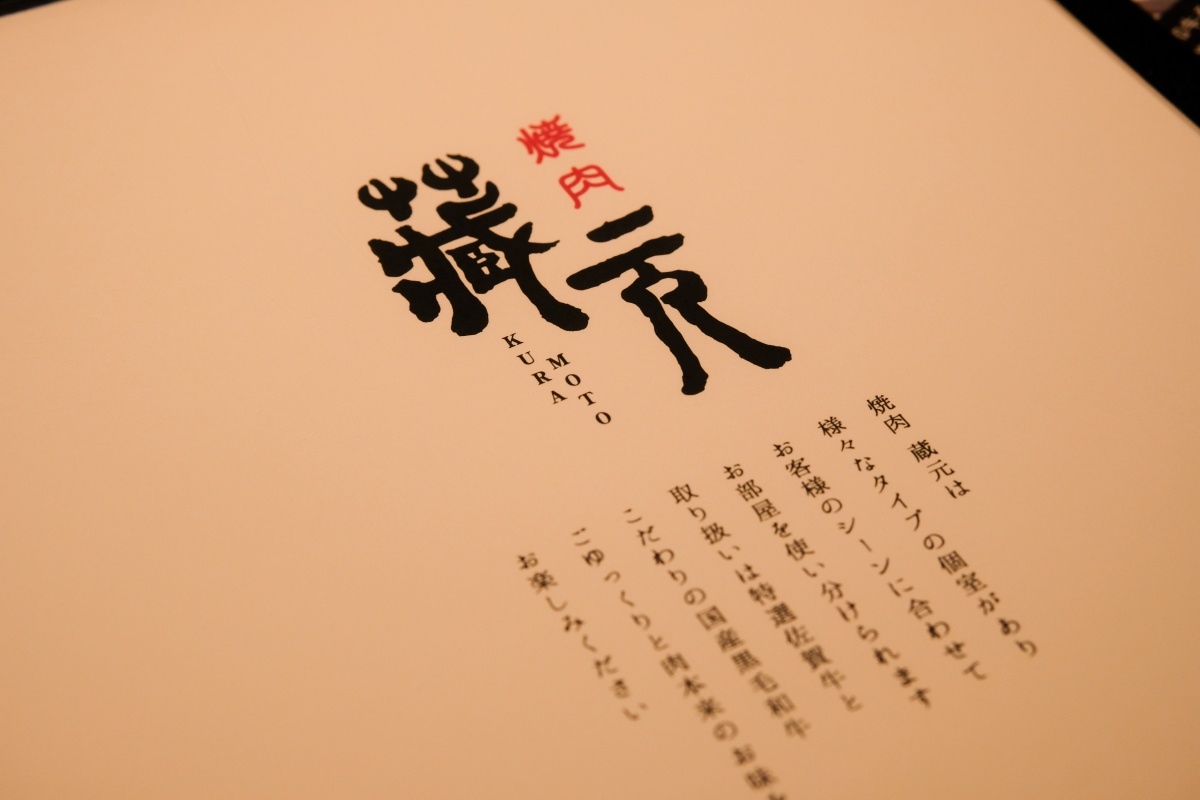 焼肉
藏元
KURA
MOTO
焼肉 蔵元は
様々なタイプの個室があり
お客様のシーンに合わせて
お部屋を使い分けられます
取り扱いは特選佐賀牛と
こだわりの国産黒毛和牛
ごゆっくりと肉本来のお味を
お楽しみください